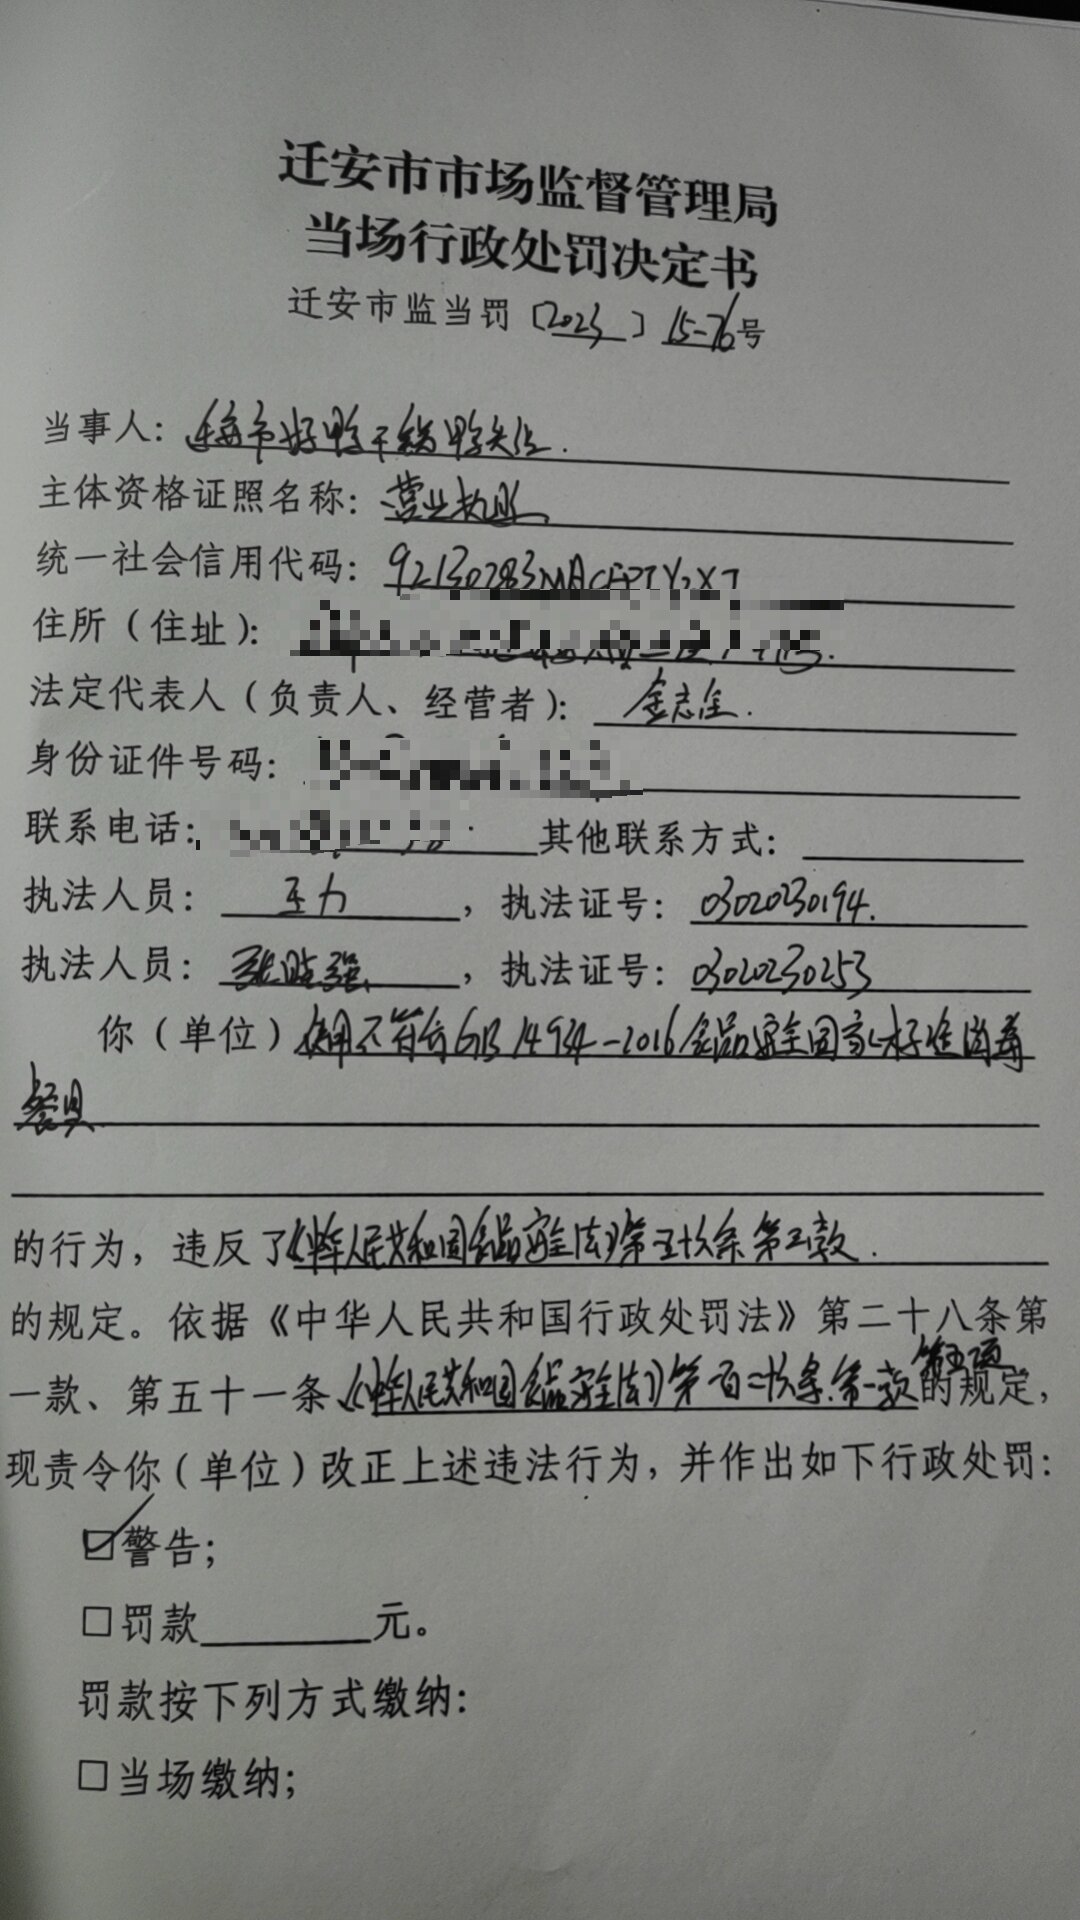 迁安市市场监督管理局
当场行政处罚决定书
迁安市监当罚〔2023〕15-76号
当事人：迁安市好鸭干锅鸭头店.
主体资格证照名称：营业执照
统一社会信用代码：92130283MACFPTY2X7
住所（住址）：
法定代表人（负责人、经营者）：金志全.
身份证件号码：
联系电话： 其他联系方式：
执法人员：王力，执法证号：0302030194.
执法人员：张胜强，执法证号：0302030253
你（单位）使用不符合GB 14934-2016食品安全国家标准消毒
餐具
的行为，违反了《中华人民共和国食品安全法》第五十六条第二款.
的规定。依据《中华人民共和国行政处罚法》第二十八条第
一款、第五十一条、《中华人民共和国食品安全法》第一百二十六条第一款第五项的规定，
现责令你（单位）改正上述违法行为，并作出如下行政处罚：
☑警告；
□罚款 元。
罚款按下列方式缴纳：
□当场缴纳；